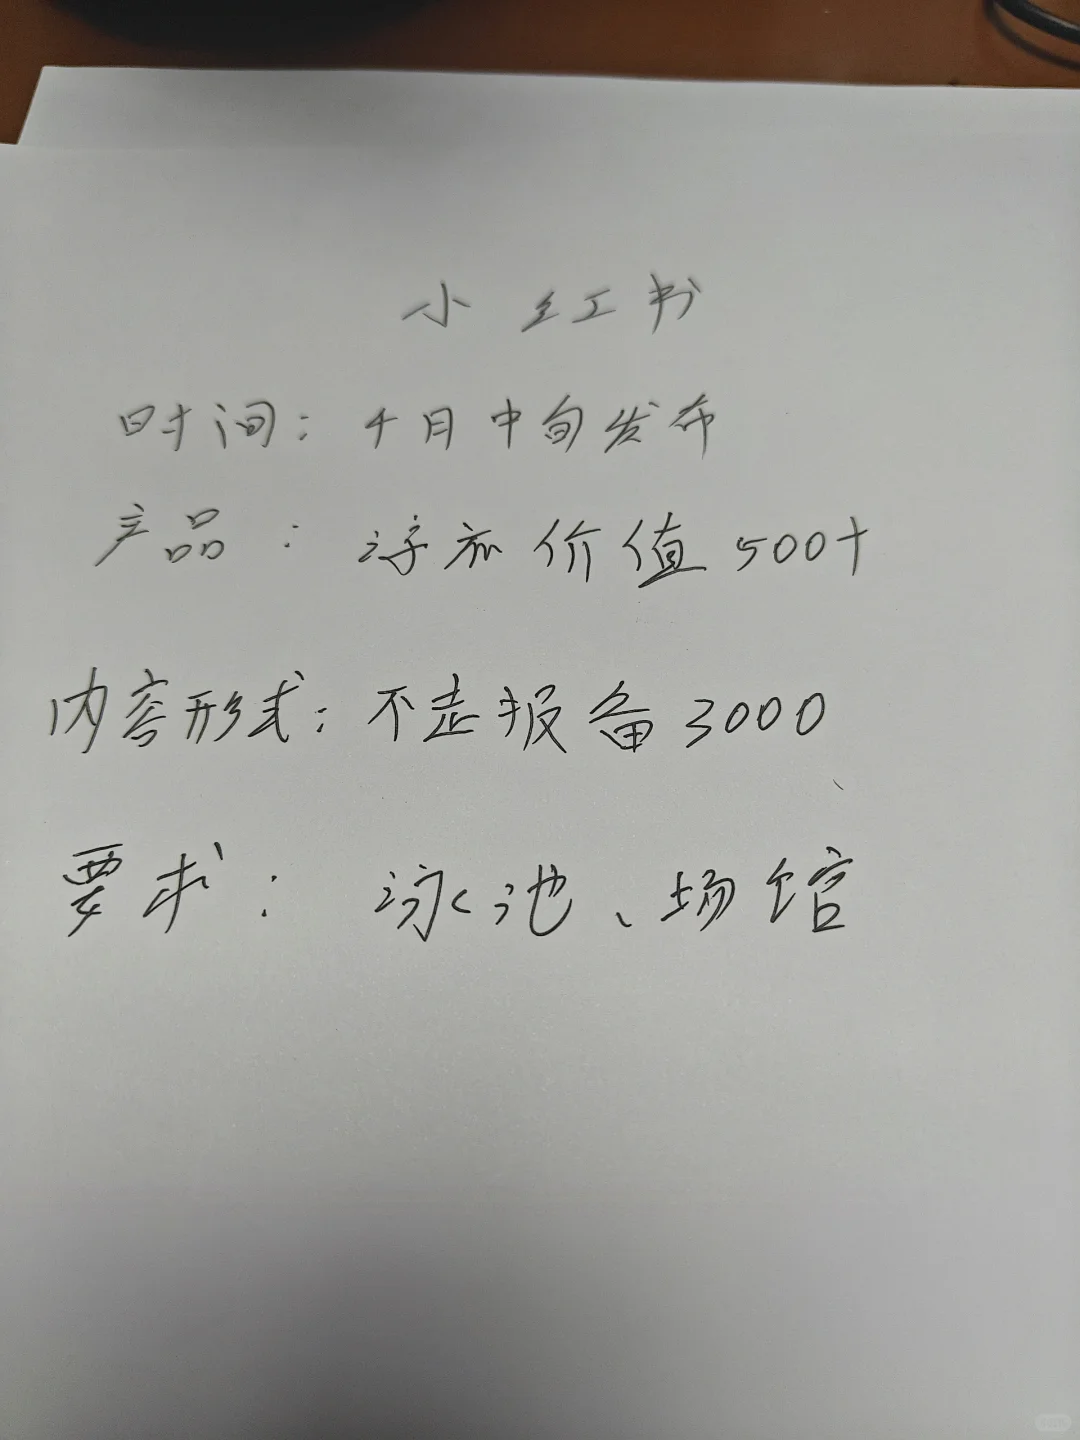 小红书
时间：4月中旬发布
产品：浮板价值500+
内容形式：不走报备3000
要求：泳池、场馆